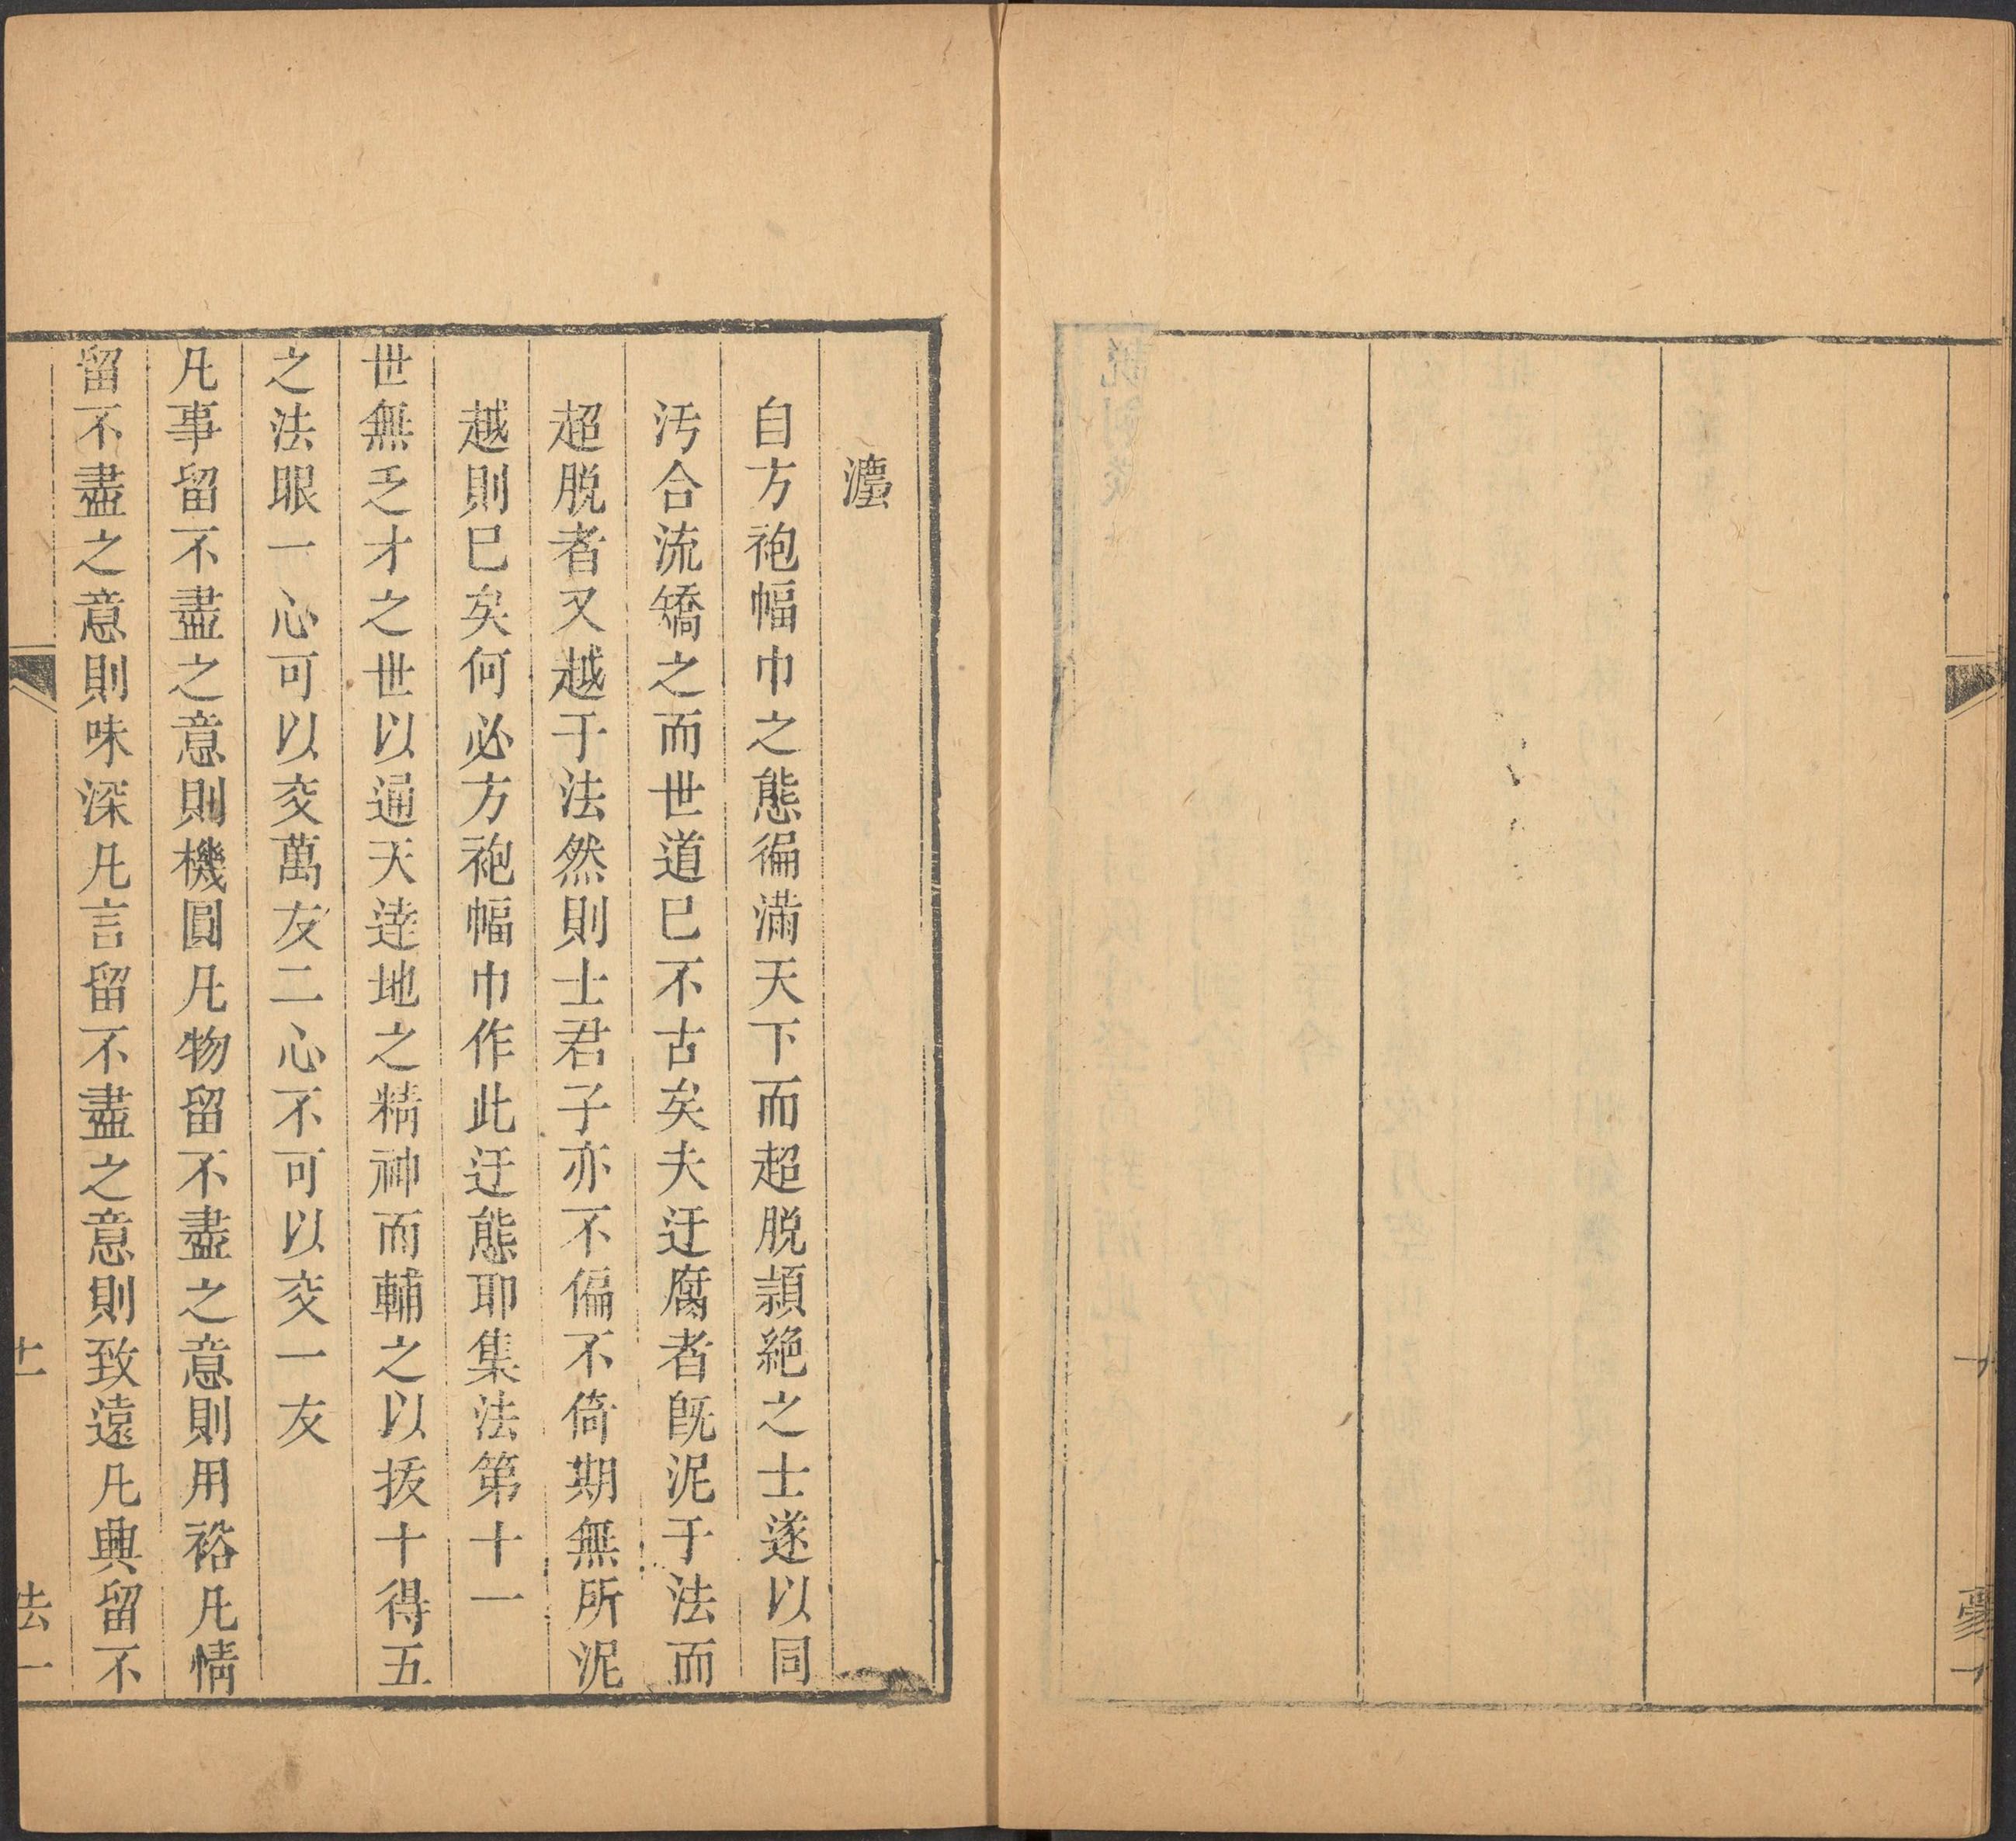 十
豪一
灋
自方袍幅巾之態徧滿天下而超脱頴絶之士遂以同
汚合流矯之而世道巳不古矣夫迂腐者旣泥于法而
超脱者又越于法然則士君子亦不偏不倚期無所泥
越則巳矣何必方袍幅巾作此迂態耶集法第十一
世無乏才之世以通天逹地之精神而輔之以拔十得五
之法眼一心可以交萬友二心不可以交一友
凡事留不盡之意則機圓凡物留不盡之意則用裕凡情
留不盡之意則味深凡言留不盡之意則致遠凡興留不
十一
法一